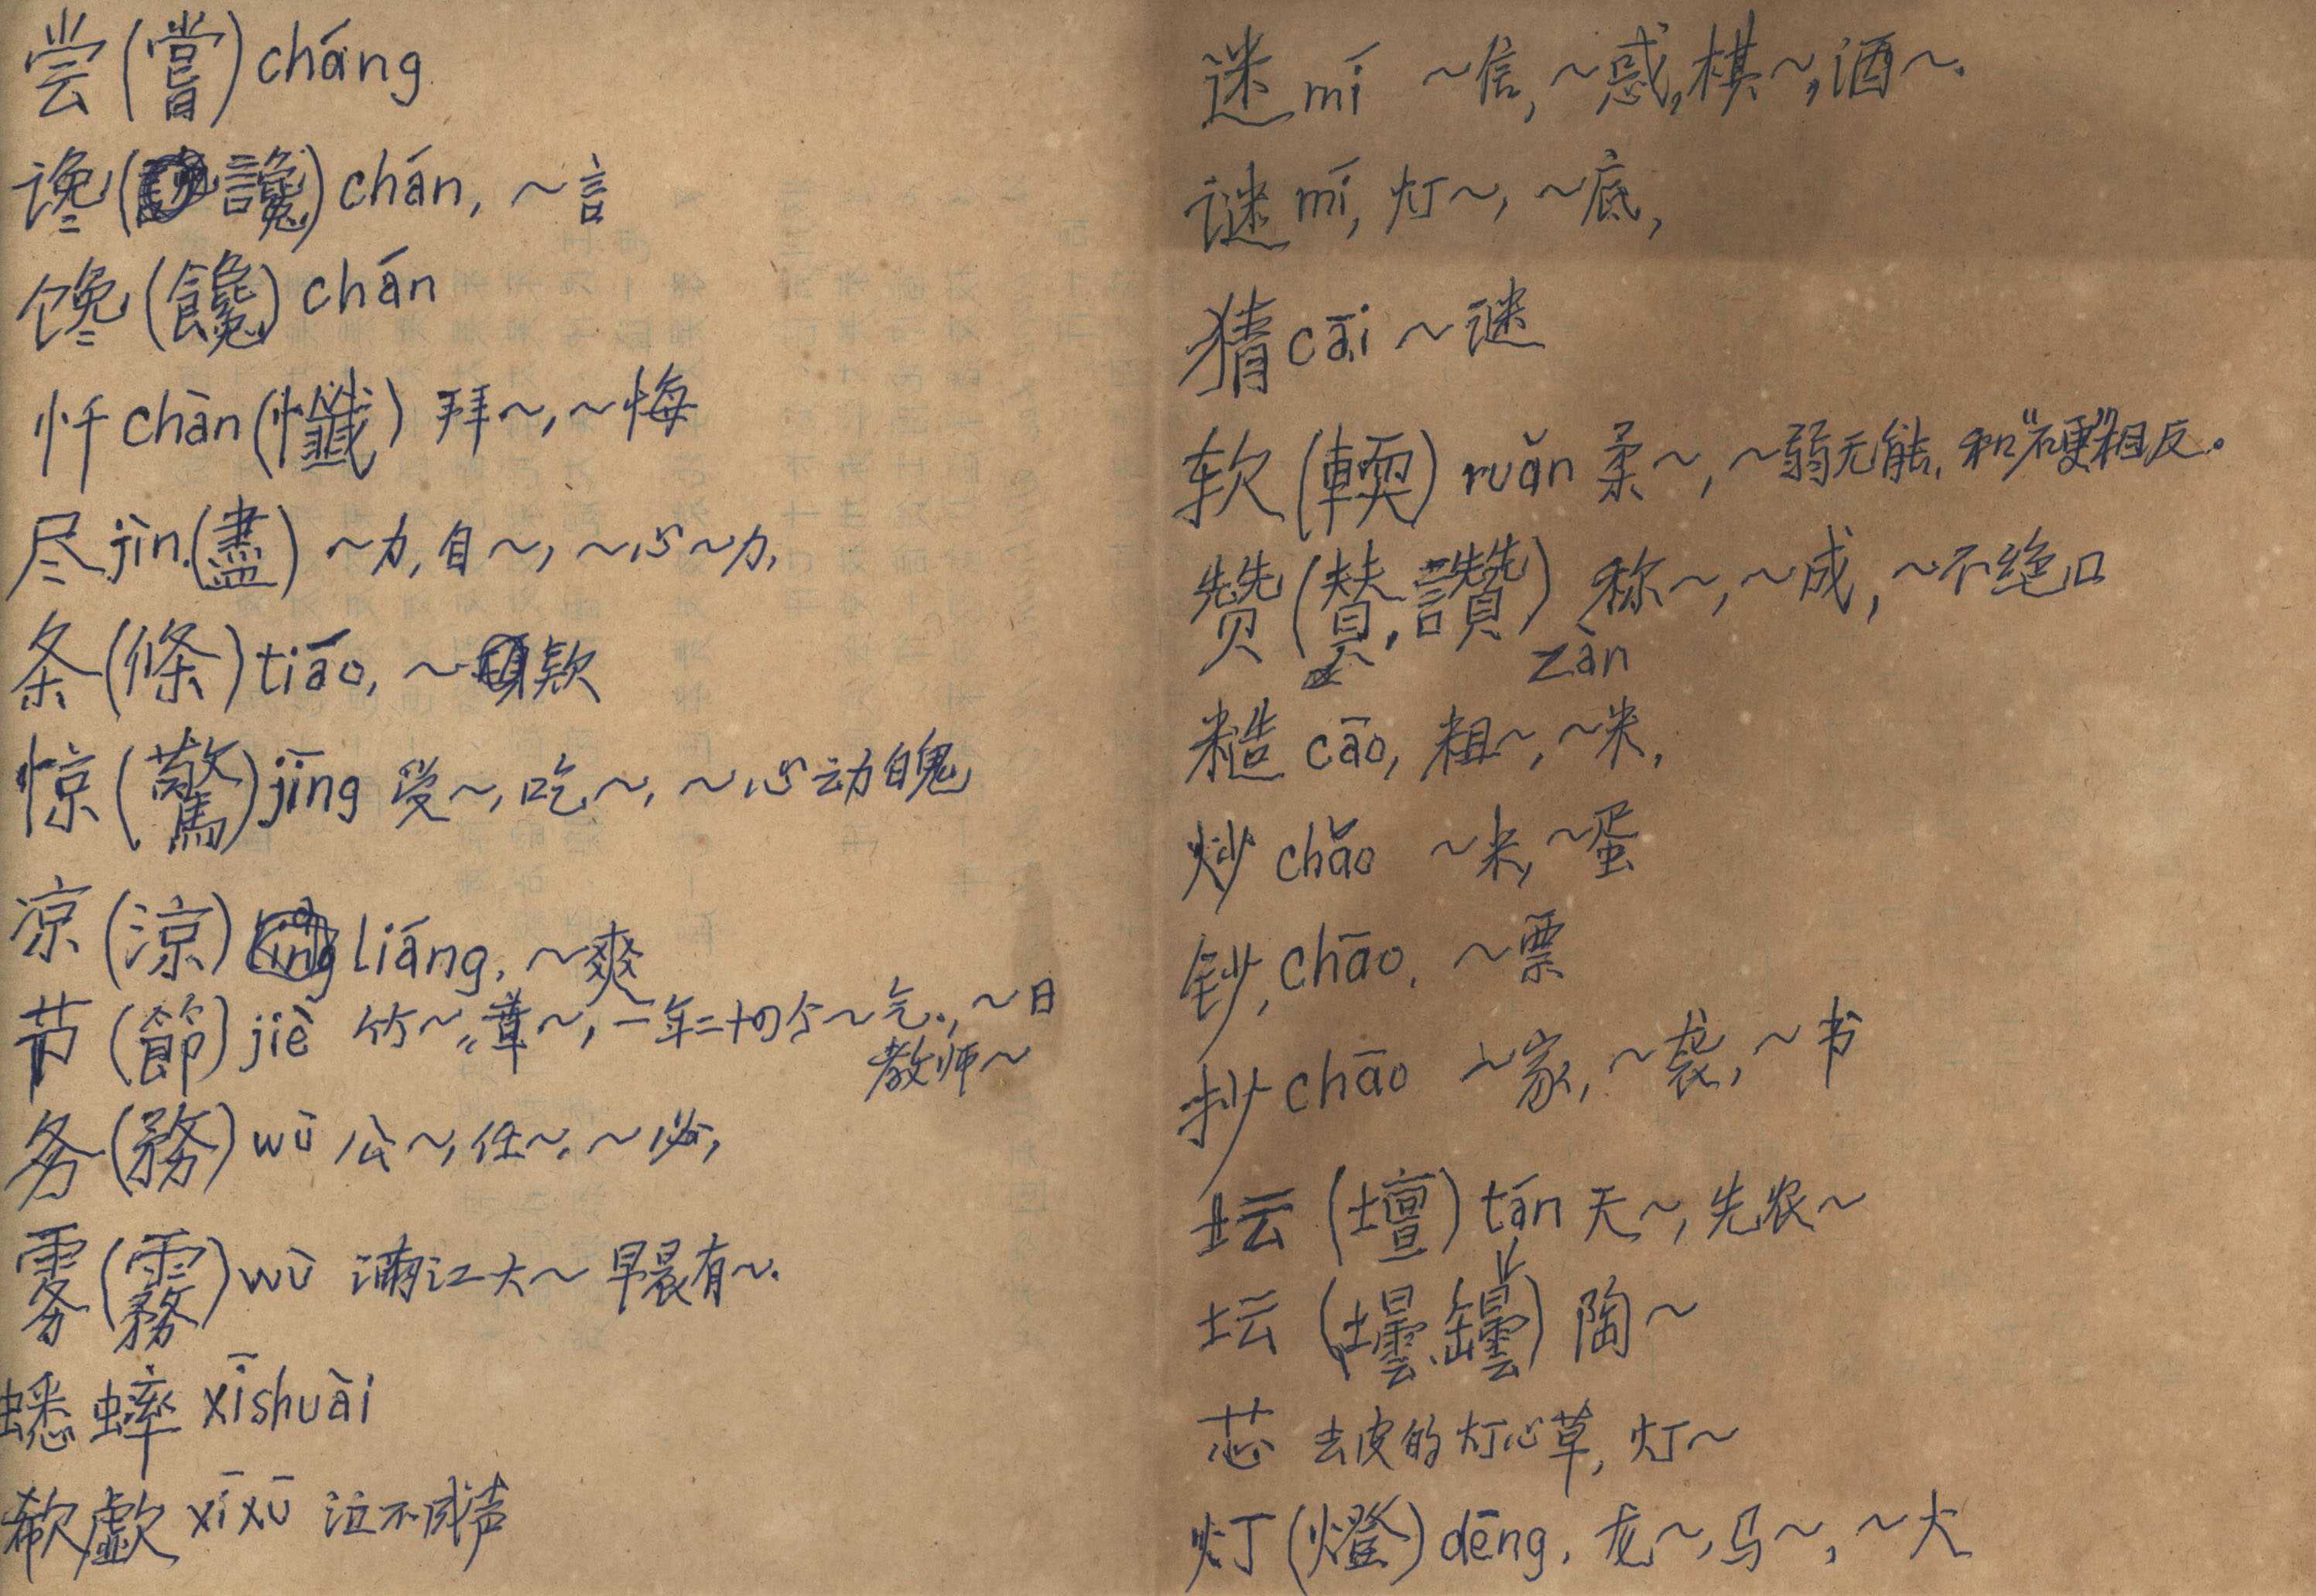 尝(嘗)cháng
谗(讒)chán, ~言
馋(饞)chán
忏chàn(懺) 拜~,~悔
尽jìn.(盡) ~力,自~,~心~力,
条(條)tiáo, ~款
惊(驚)jīng 受~,吃~,~心动魄
凉(涼)liáng, ~爽
节(節)jié 竹~,章~,一年二十四个~气.,~日
教师~
务(務)wù 公~,任~,~必,
雾(霧)wù 满江大~ 早晨有~.
蟋蟀 xīshuài
欷歔 xīxū 泣不成声
迷mí ~信,~惑,棋~,酒~.
谜mí,灯~,~底,
猜cāi ~谜
软(輭)ruǎn 柔~,~弱无能,和"硬"相反。
赞(賛,讃) 称~,~成,~不绝口
zàn
糙cāo,粗~,~米,
炒chǎo ~米,~蛋
钞,chāo, ~票
抄chāo ~家,~袭,~书
坛(壇)tán 天~,先农~
坛(壜、罎) 陶~
芯 去皮的灯心草,灯~
灯(燈)dēng, 龙~,马~,~火